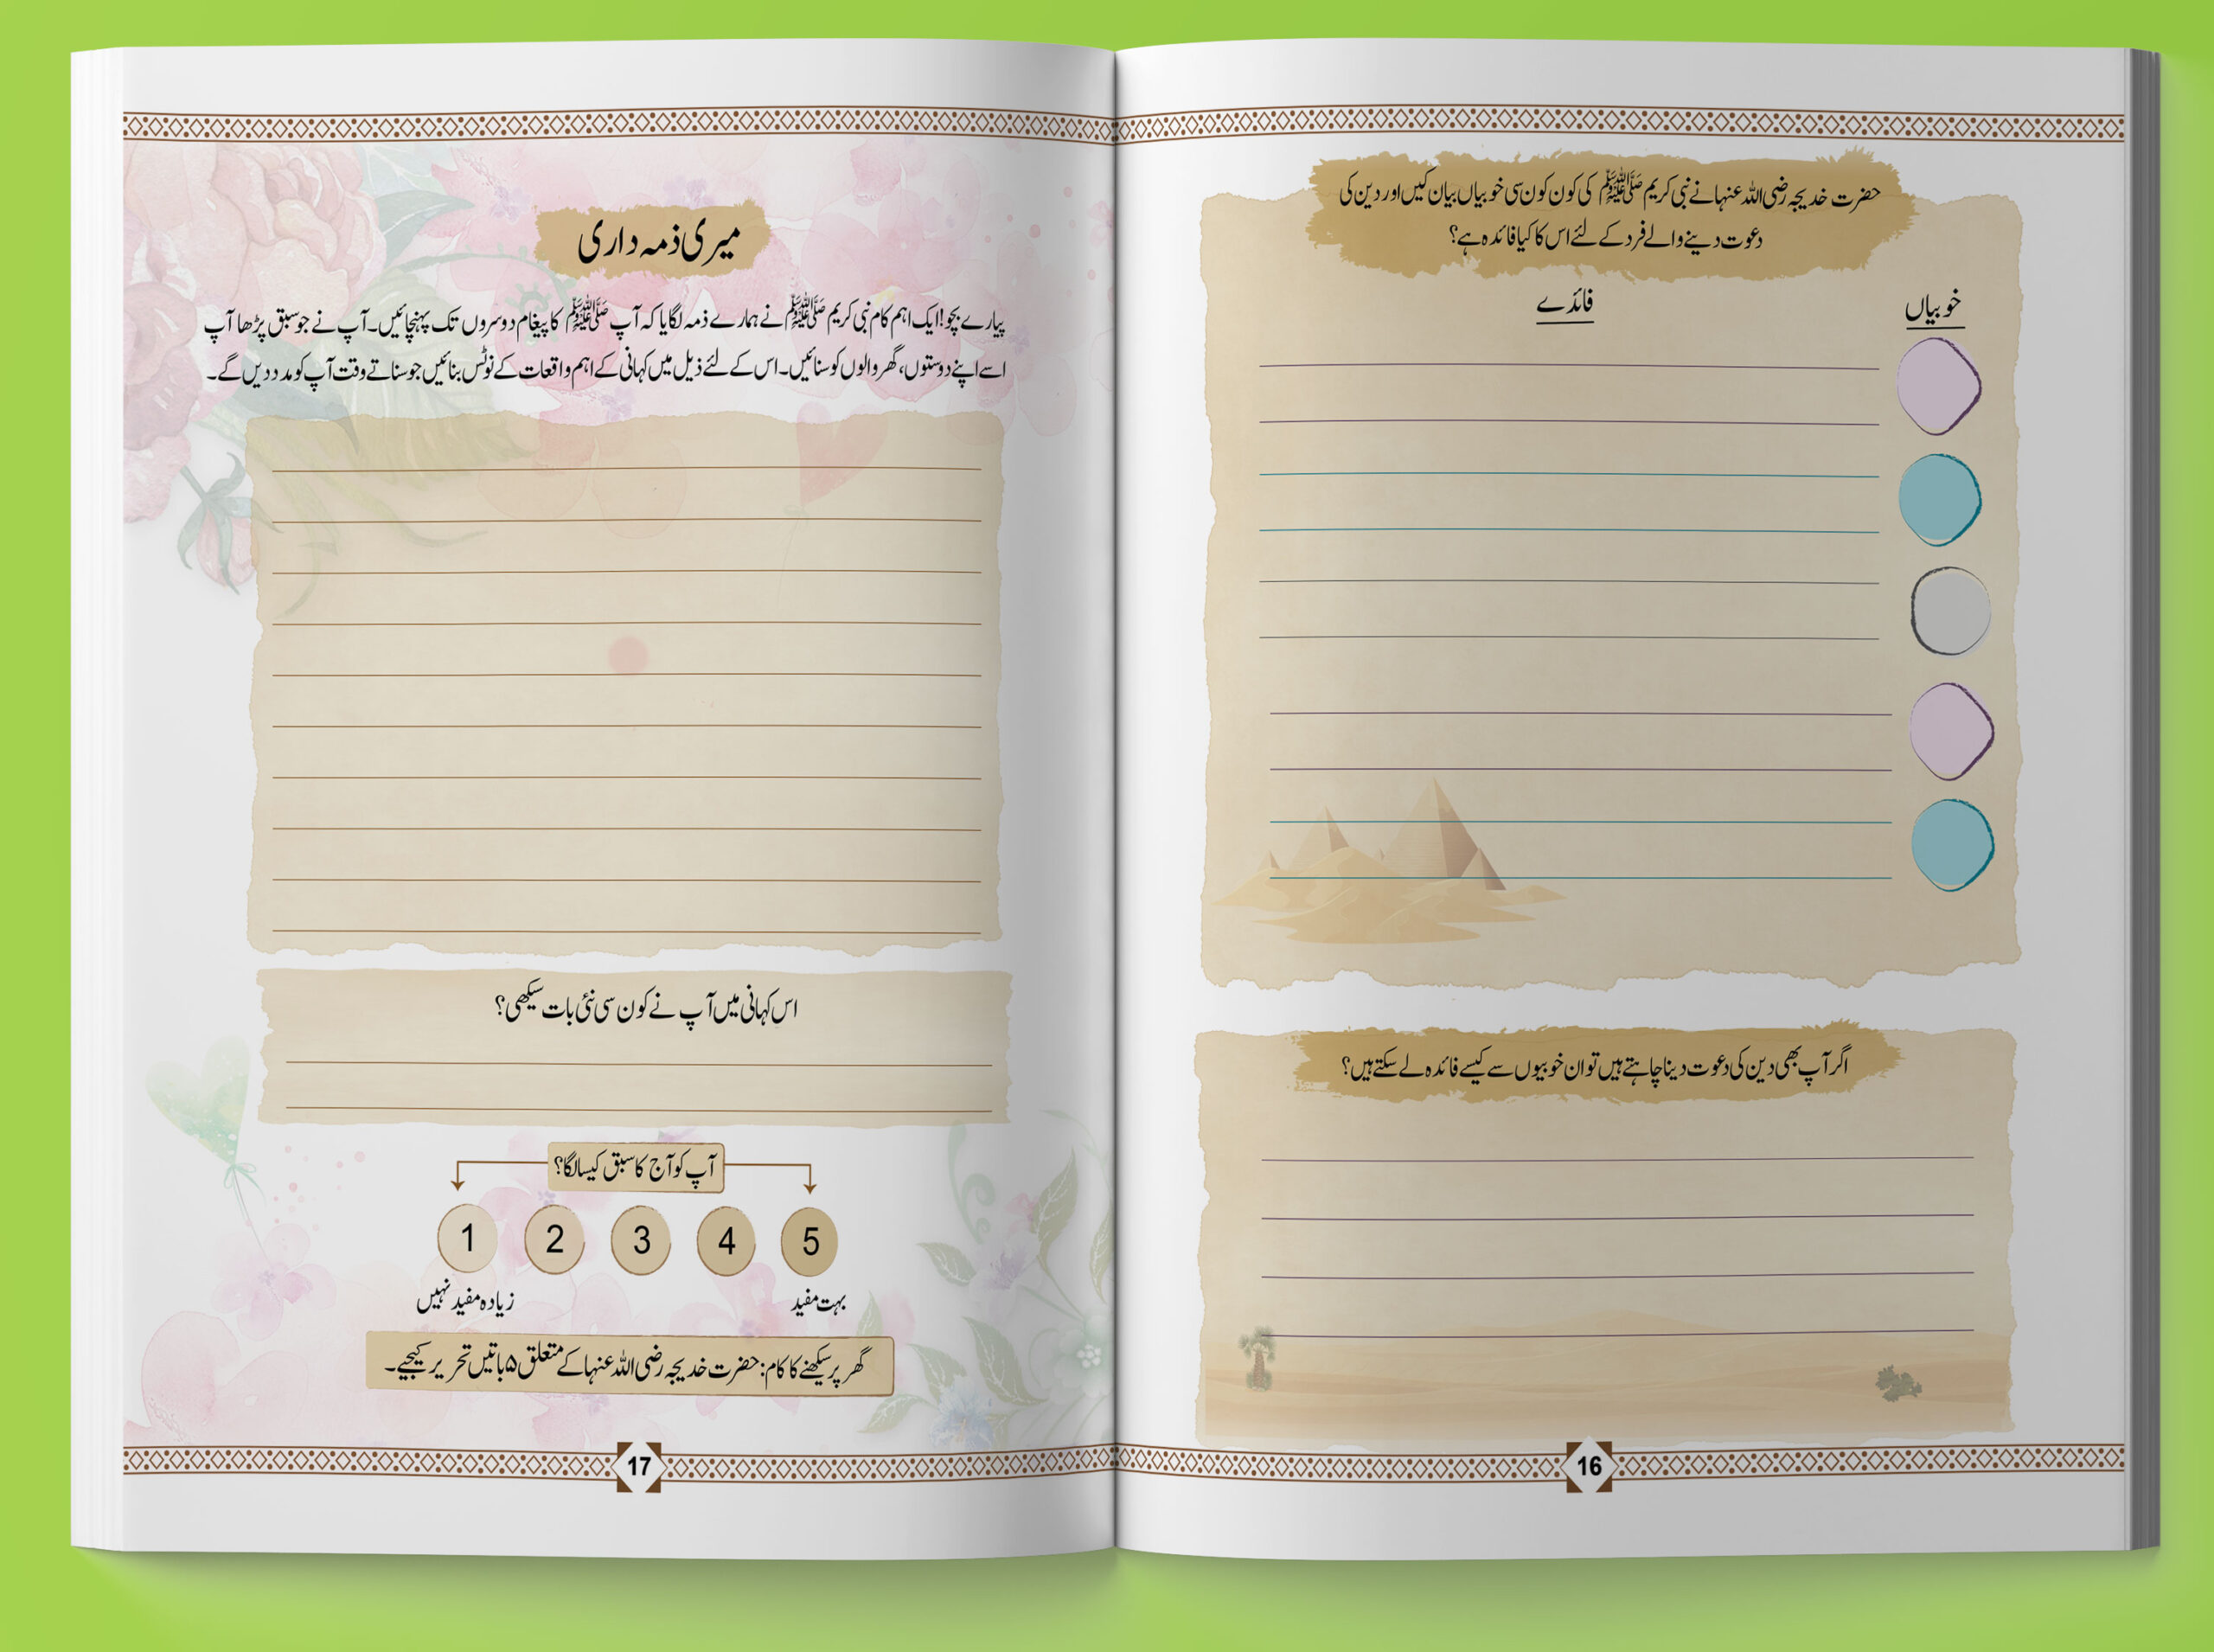 حضرت خدیجہ رضی اللہ عنہا نے نبی کریم ﷺ کی کون کون سی خوبیاں بیان کیں اور دین کی
دعوت دینے والے فرد کے لئے اس کا کیا فائدہ ہے؟
خوبیاں
فائدے
اگر آپ بھی دین کی دعوت دینا چاہتے ہیں تو ان خوبیوں سے کیسے فائدہ لے سکتے ہیں؟
16
میری ذمہ داری
پیارے بچو! ایک اہم کام نبی کریم ﷺ نے ہمارے ذمہ لگایا کہ آپ ﷺ کا پیغام دوسروں تک پہنچائیں۔ آپ نے جو سبق پڑھا آپ
اسے اپنے دوستوں، گھر والوں کو سنائیں۔ اس کے لئے ذیل میں کہانی کے اہم واقعات کے نوٹس بنائیں جو سناتے وقت آپ کو مدد دیں گے۔
اس کہانی میں آپ نے کون سی نئی بات سیکھی؟
آپ کو آج کا سبق کیسا لگا؟
1 2 3 4 5
بہت مفید
زیادہ مفید نہیں
گھر پر سیکھنے کا کام: حضرت خدیجہ رضی اللہ عنہا کے متعلق ۵ باتیں تحریر کیجیے۔
17